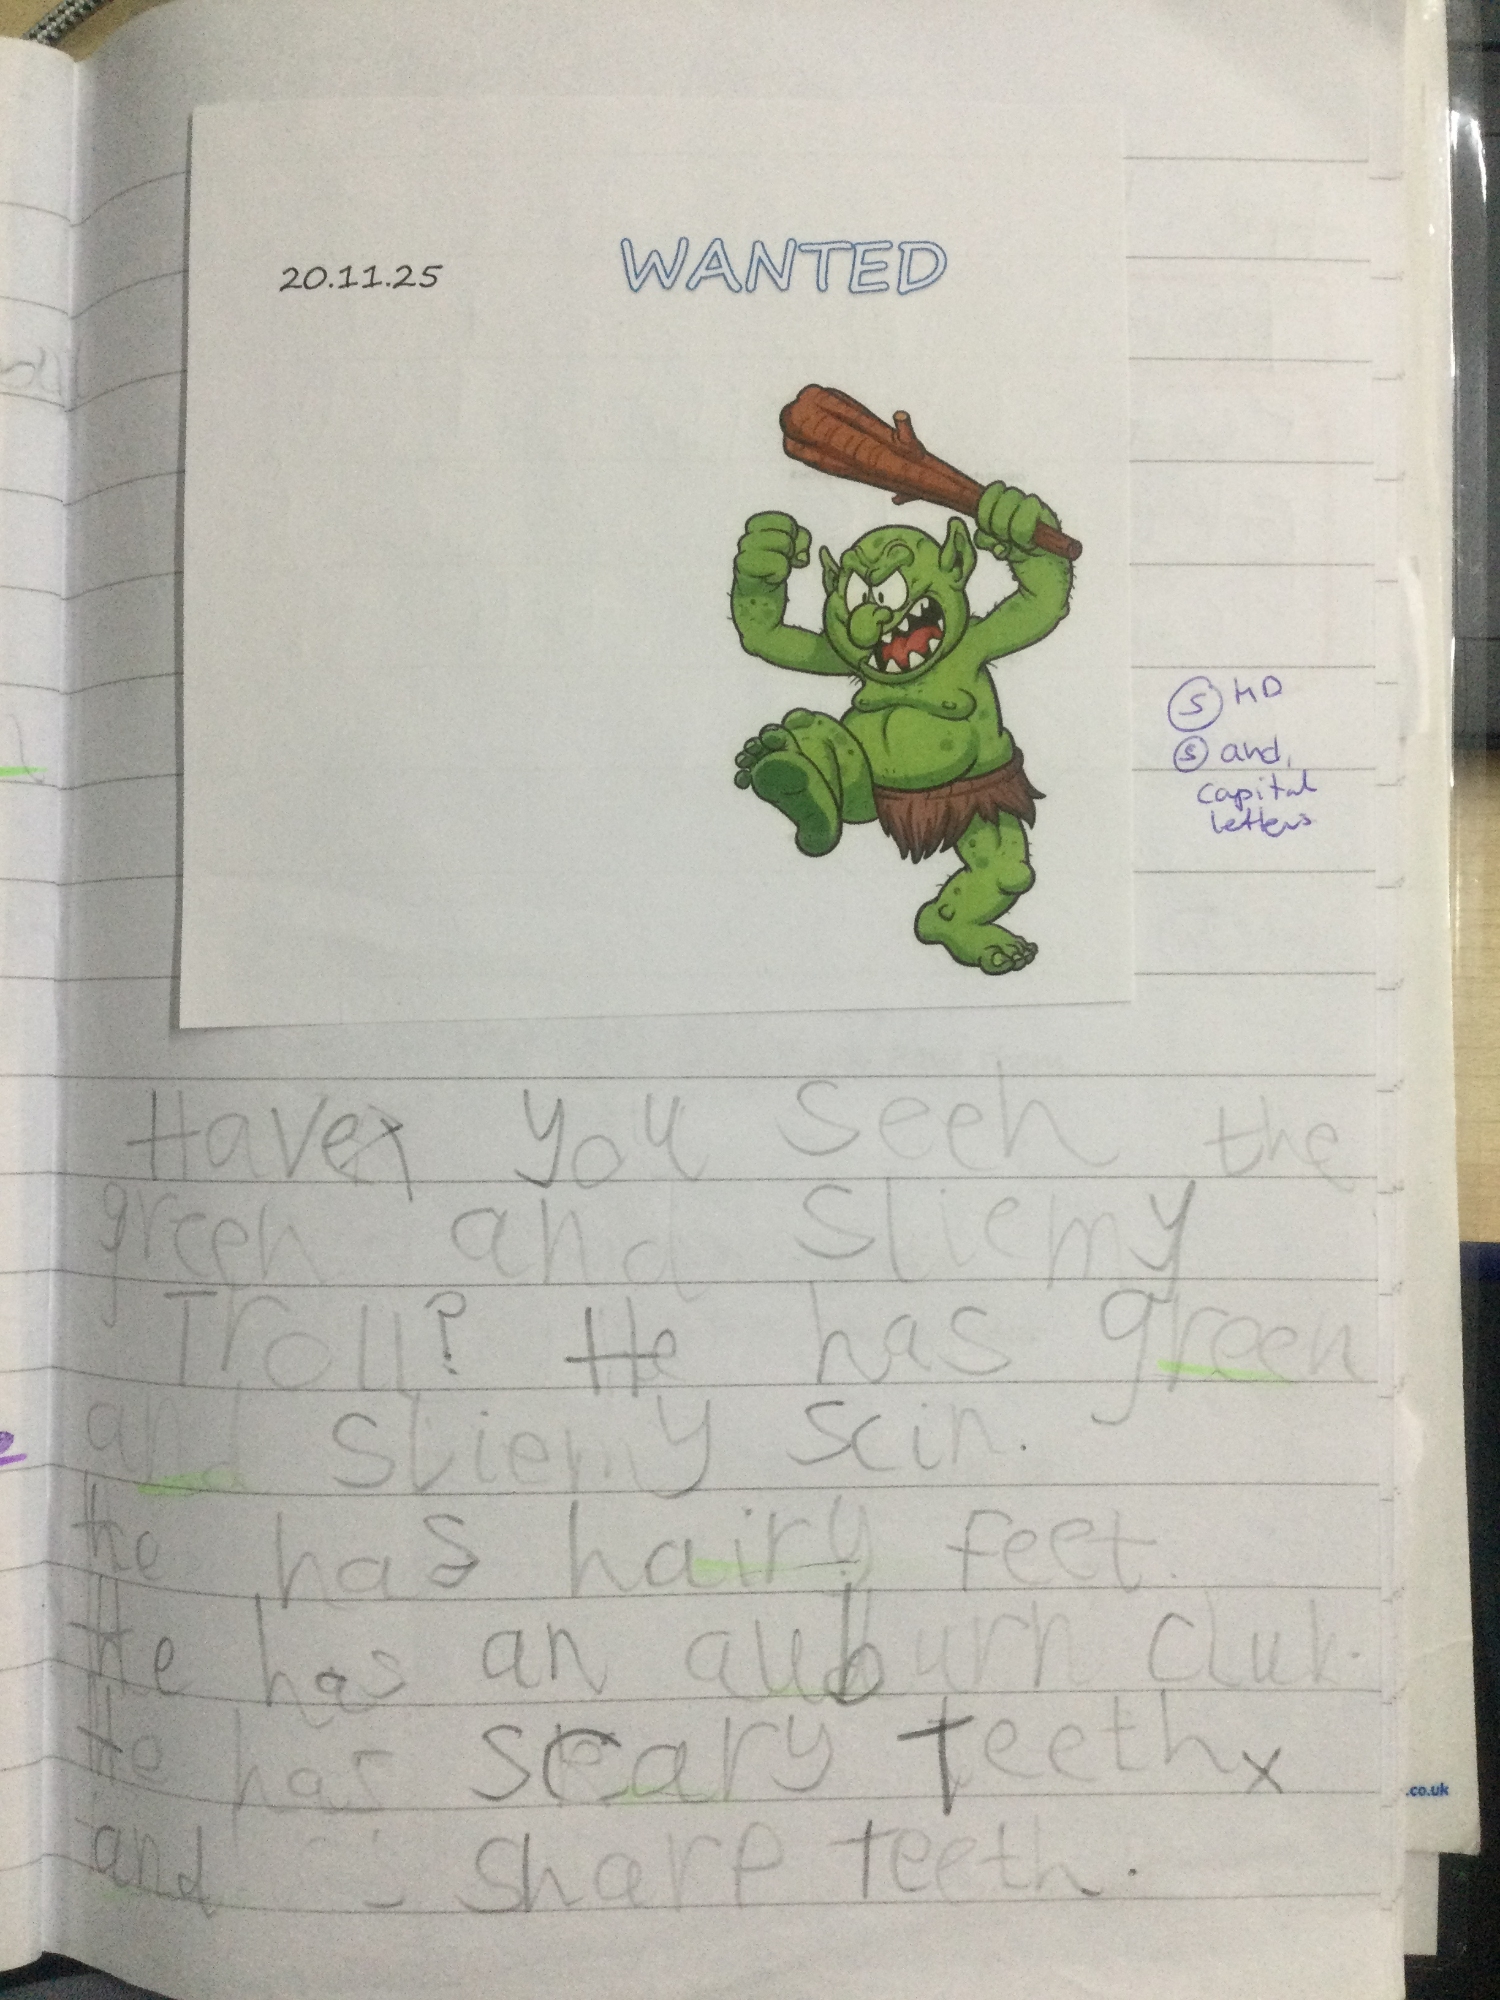 20.11.25 WANTED
S HD
S and,
capital
letters
Have you seen the
green and Sliemy
Troll? He has green
and Sliemy scin.
He has hairy feet.
He has an auburn cluk.
He has scary Teeth x
and sharp Teeth.
.co.uk